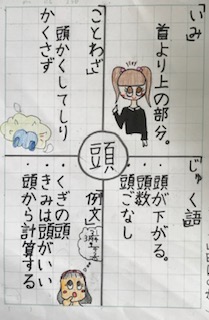 「いみ」
首より上の部分。
じゅく語
・頭が下がる。
・頭数
・頭ごなし
頭
「ことわざ」
頭かくしてしり
かくさず
例文」
・くぎの頭
・きみは頭がいい
・頭から計算する